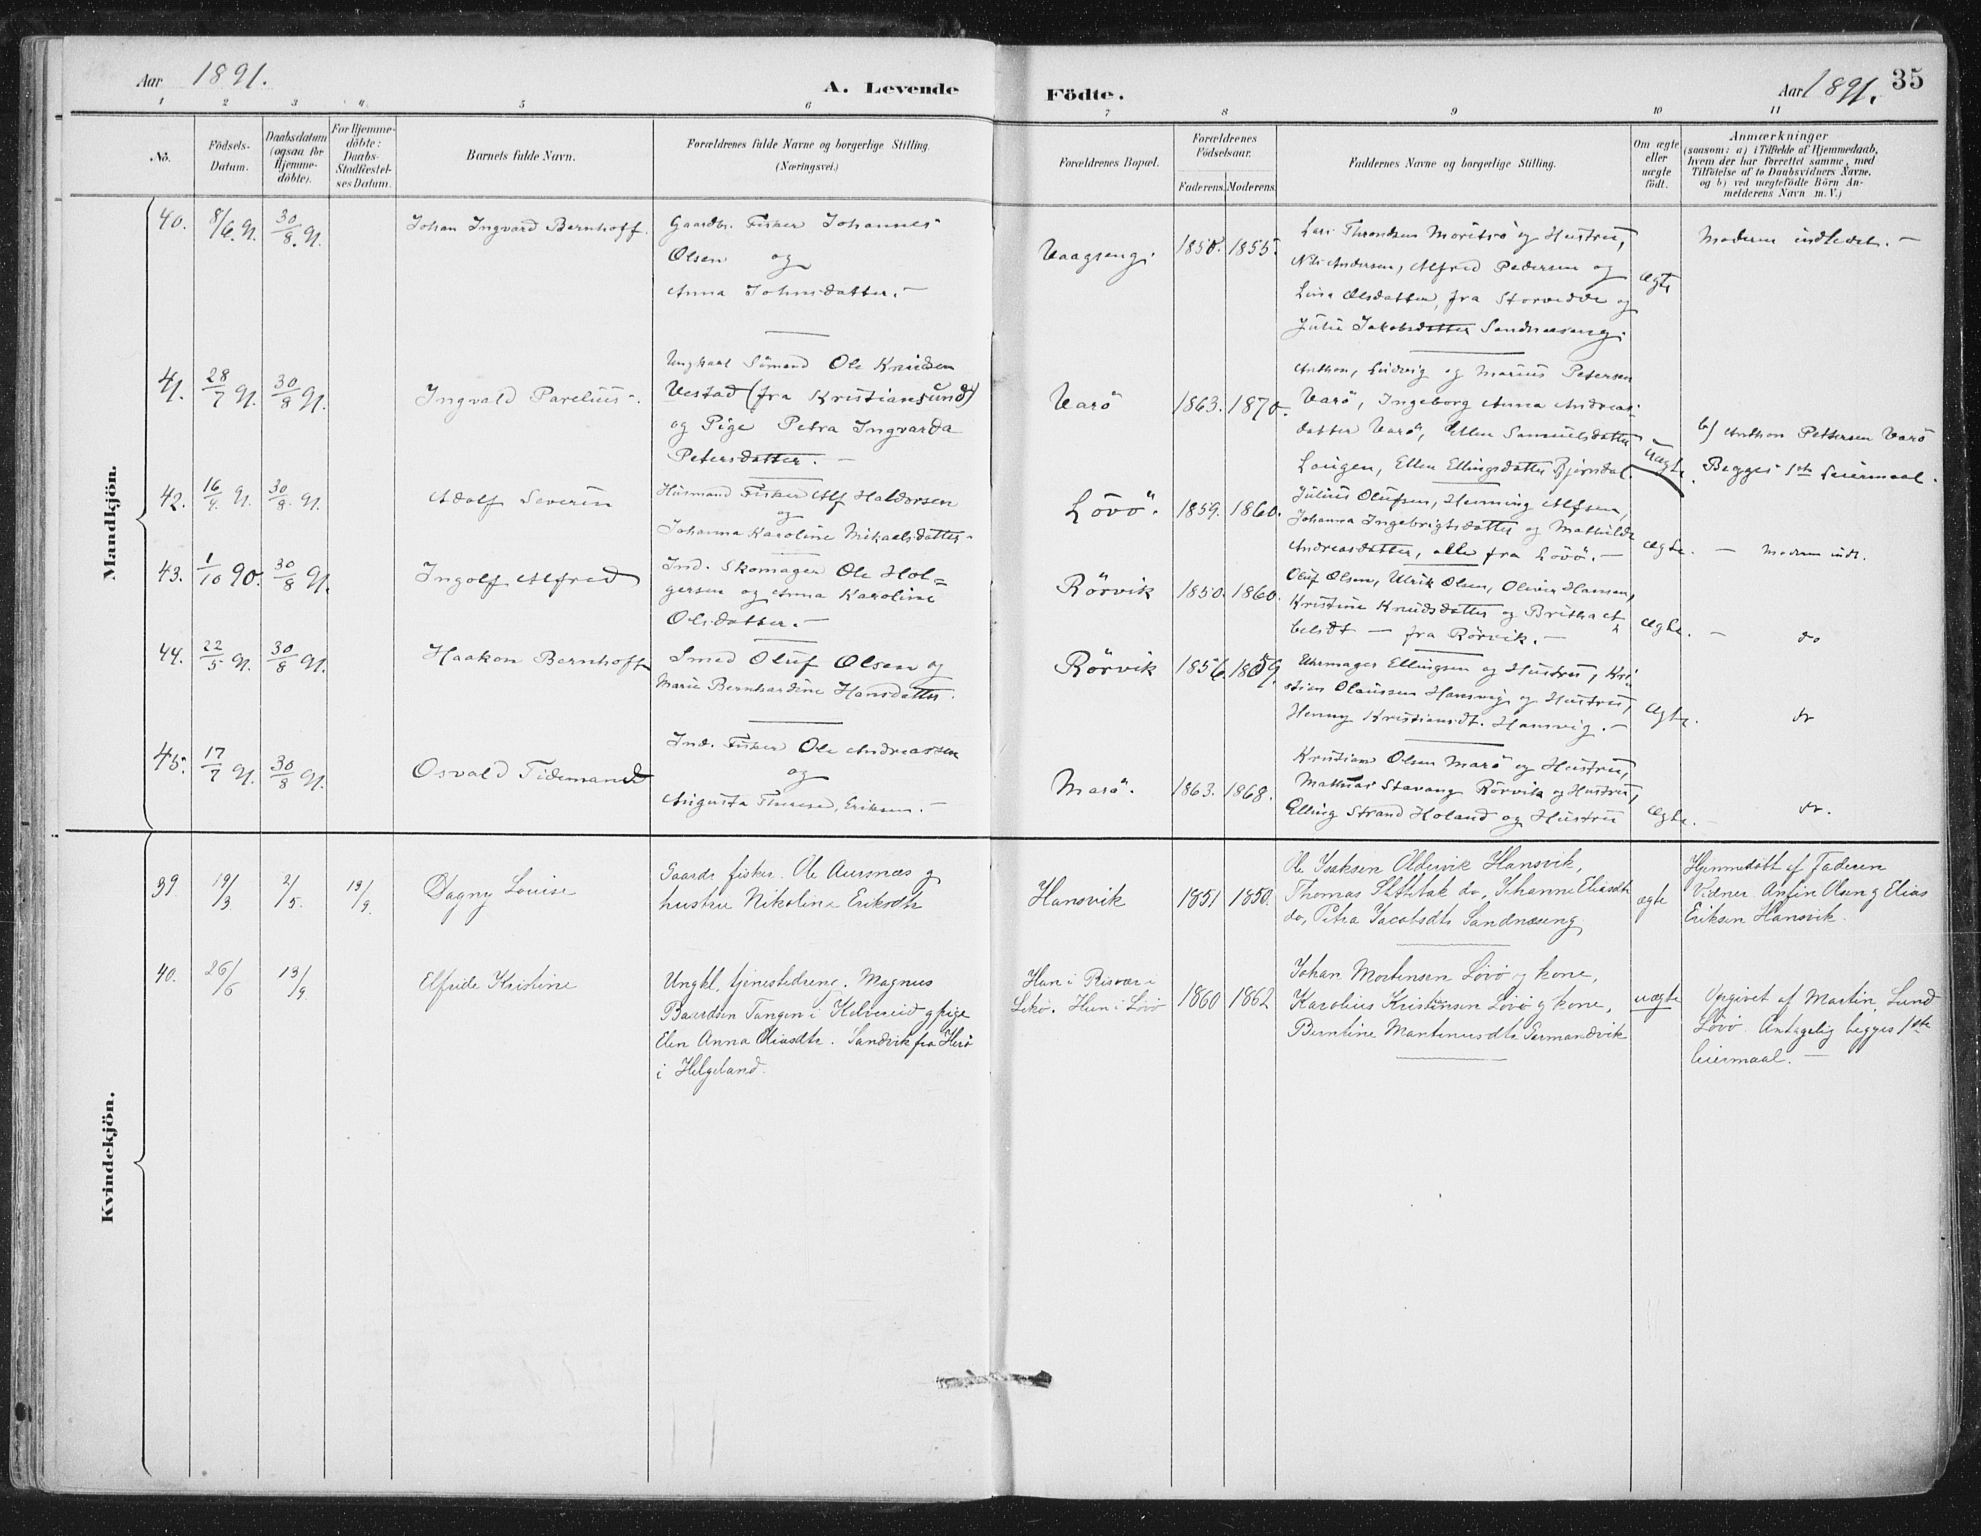 Aar 1891.
A. Levende
Födte.
Aar 1891.
35
1 2 3 4 5 6 7 8 9 10 11
No.
Födsels-
Datum.
Daabsdatum
(ogsaa for
Hjemme-
döbte).
For Hjemme-
döbte:
Daabs-
Stadfæstel-
ses Datum.
Barnets fulde Navn.
Forældrenes fulde Navne og borgerlige Stilling.
(Næringsvei.)
Forældrenes Bopæl.
Forældrenes
Födselsaar.
Faderens. Moderens.
Faddernes Navne og borgerlige Stilling.
Om ægte
eller
uægte
födt.
Anmærkninger
(saasom: a) i Tilfælde af Hjemmedaab,
hvem der har forrettet samme, med
Tilföielse af to Daabsvidners Navne,
og b) ved uægtefödte Börn An-
melderens Navn m. V.)
Mandkjön.
40. 8/6 91. 30/8 91.
Johan Ingvard Bernhoff.
Gaardbr. Fisker Johannes
Olsen og
Anna Johnsdatter. —
Vaagseng.
1850. 1855.
Lars Throndsen Moritsö og Hustru,
Nils Andersen, Alfred Pedersen og
Lina Olsdatter, fra Storvedde og
Julie Jakobsdatter Sandnæseng.
ægte
Moderen indledet. —
41. 28/7 91. 30/8 91.
Ingvald Parelius.
Ungkarl Sömand Ole Knudsen
Vestad (fra Kristiansund)
og Pige Petra Ingvarda
Petersdatter. —
Varö
1863. 1870.
Anthon, Ludvig og Marius Petersen
Varö, Ingeborg Anna Andreas-
datter Varö, Ellen Samuelsdatter
Laugen, Ellen Ellingsdatter Bjørndal.
uægte.
b) Anthon Pettersen Varö
Begges 1ste Leiermaal.
42. 16/4 91. 30/8 91.
Adolf Severin
Husmand Fisker Alf Haldorsen
og
Johanna Karoline Mikaelsdatter.
Lövö.
1859. 1860.
Julius Olufsen, Henning Alfsen,
Johanna Ingebrigtsdatter og Mathilde
Andreasdatter, alle fra Lövö. —
ægte. —
Modern indl.
43. 1/10 90. 30/8 91.
Ingolf Alfred
Ind. Skomager Ole Hol=
gersen og Anna Karoline
Olsdatter. —
Rörvik
1850. 1860.
Oluf Olsen, Ulrik Olsen, Oliver Hansen,
Kristine Knudsdatter og Britha A-
belsdt — fra Rörvik. —
ægte. —
do
44. 22/5 91. 30/8 91.
Haakon Bernhoft
Smed Oluf Olsen og
Marie Bernhardine Hansdatter.
Rörvik
1856. 1859.
Uhrmager Ellingsen og Hustru, Kri-
stian Olaussen Hansvig og Hustru,
Henny Kristiansdt. Hansvig. —
ægte.
do
45. 17/7 91. 30/8 91.
Osvald Tidemand
Ind. Fisker Ole Andreassen
og
Augusta Therese Eriksen. —
Marö.
1863. 1868.
Kristian Olsen Marö og Hustru,
Mathias Stavang Rörvik og Hustru,
Elling Strand Holand og Hustru
ægte. —
do.
Kvindekjön.
39 19/3 2/5. 13/9.
Dagny Louise
Gaardr fisker. Ole Aursnæs og
hustru Nikoline Eriksdtr
Hansvik
1851 1850.
Ole Isaksen Oldervik Hansvik,
Thomas do, Johanne Eliasdtr
do, Petra Jacobsdtr Sandnæseng
ægte
Hjemmedöbt af Faderen
Vidner. Anfin Olsen og Elias
Eriksen Hansvik.
40. 26/6 13/9
Elfride Kristine
Ungkl. tjenestedreng. Magnus
Baardsen Tangen i Kolvereid og pige
Elen Anna Eliasdtr. Sandvik fra Herö
i Helgeland.
Han i Risvær i
Lekö. Hun i Lövö
1860 1862
Johan Mortensen Lövö og kone,
Karolius Kristensen Lövö og kone,
Berntine Martinusdtr Sermandvik
uægte
Opgivet af Martin Lund
Lövö. Antagelig begges 1ste
leiermaal. —